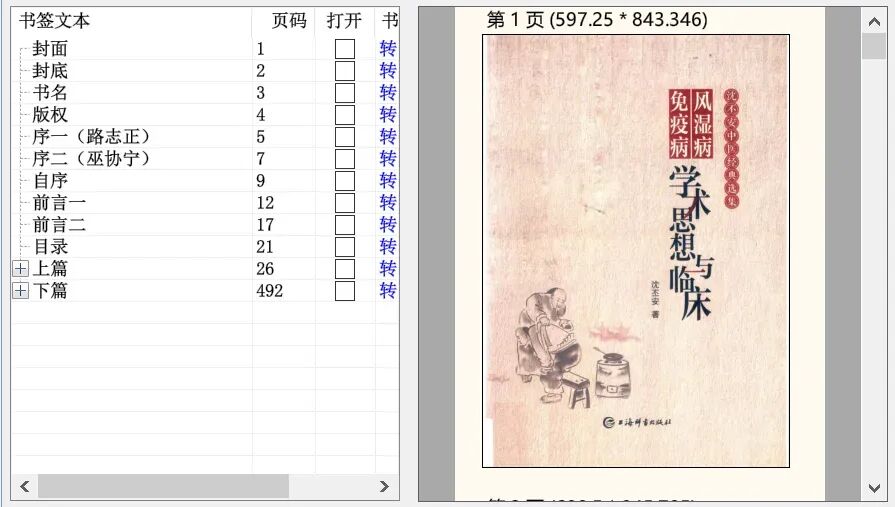 书签文本 页码 打开 书
封面 1 转
封底 2 转
书名 3 转
版权 4 转
序一（路志正） 5 转
序二（巫协宁） 7 转
自序 9 转
前言一 12 转
前言二 17 转
目录 21 转
上篇 26 转
下篇 492 转
第 1 页 (597.25 * 843.346)
沈丕安中医经典选集
风湿病
免疫病
学术思想与临床
沈丕安 著
上海辞书出版社